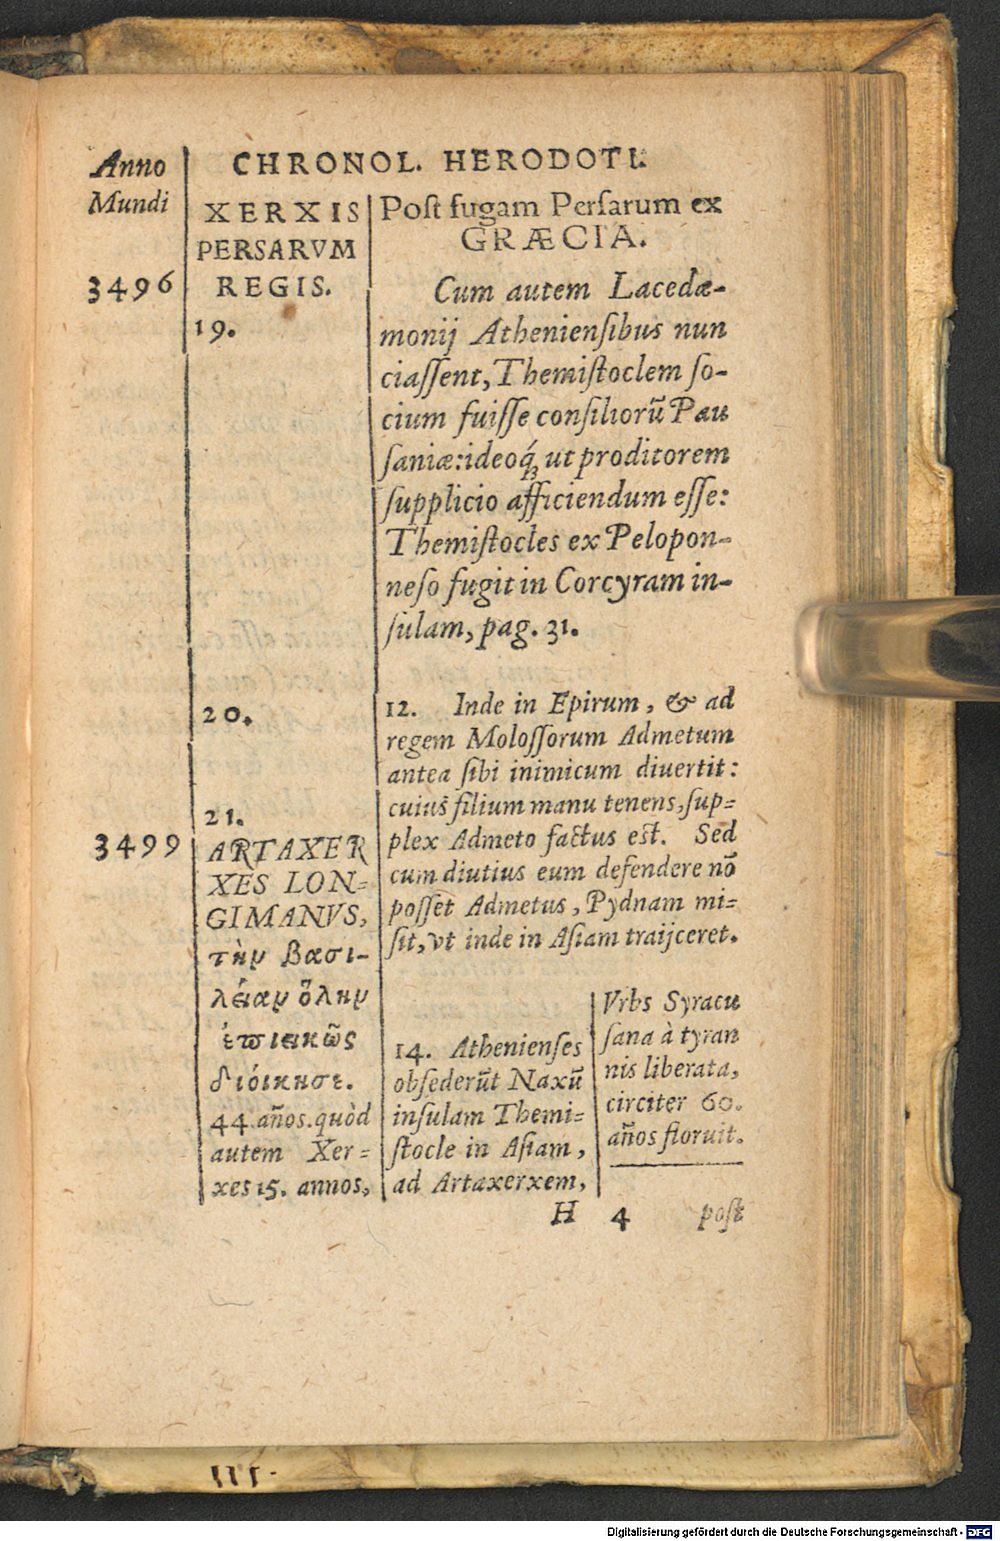 CHRONOL. HERODOTI.
Anno
Mundi
3496
XERXIS
PERSARVM
REGIS.
19.
Poſt fugam Perſarum ex
GRÆCIA.
Cum autem Lacedæ-
monij Athenienſibus nun
ciaſſent, Themiſtoclem ſo-
cium fuiſſe conſiliorũ Pau
ſaniæ: ideoq́ꝫ ut proditorem
ſupplicio afficiendum eſſe:
Themiſtocles ex Pelopon-
neſo fugit in Corcyram in-
ſulam, pag. 31.
20.
12. Inde in Epirum, & ad
regem Moloſſorum Admetum
antea ſibi inimicum diuertit:
cuius filium manu tenens, ſup-
plex Admeto factus est. Sed
cum diutius eum defendere nõ
poſſet Admetus, Pydnam mi-
ſit, vt inde in Aſiam traijceret.
21.
3499
ARTAXER
XES LON-
GIMANVS,
τὴν βασι-
λείαν ὅλην
ἐπιεικῶς
διῴκησε.
44 años. quòd
autem Xer-
xes 15. annos,
14. Athenienſes
obſederũt Naxũ
inſulam Themi-
ſtocle in Aſiam,
ad Artaxerxem,
Vrbs Syracu
ſana à tyran
nis liberata,
circiter 60.
años floruit.
H 4 poſt
III.
Digitalisierung gefördert durch die Deutsche Forschungsgemeinschaft - DFG